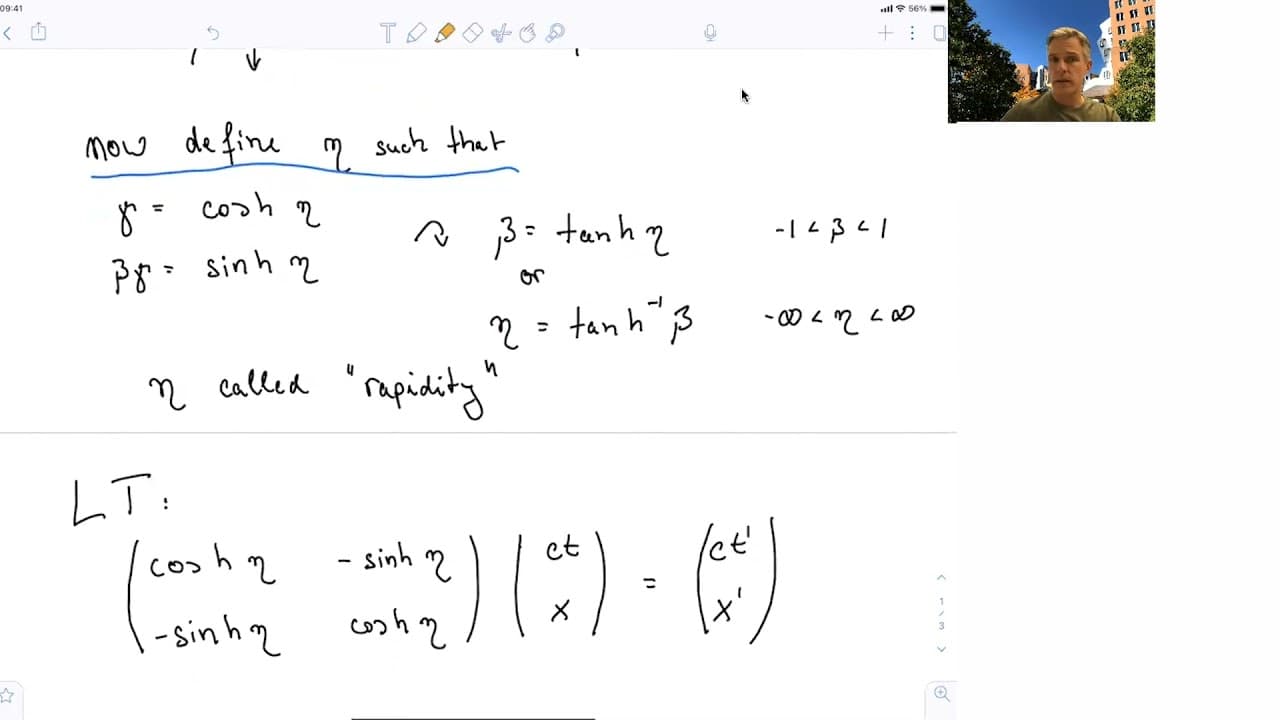 09:41
56%
now define η such that
γ = cosh η
βγ = sinh η
β = tanh η
-1 < β < 1
or
η = tanh⁻¹ β
-∞ < η < ∞
η called "rapidity"
LT:
(cosh η  - sinh η) (ct) = (ct')
(-sinh η  cosh η) (x) (x')
1
/
3